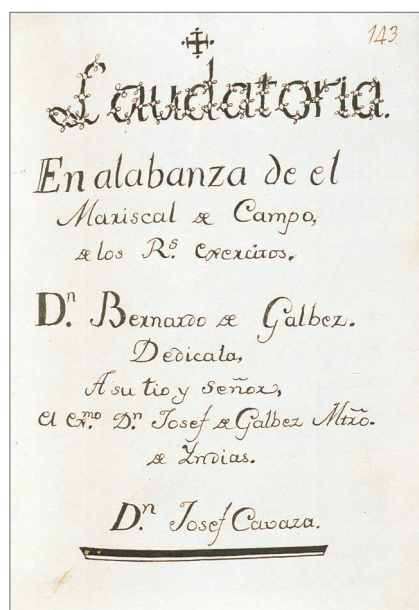 143
Laudatoria.
En alabanza de el
Mariscal de Campo,
de los R.s Exercitos.
D.n Bernardo de Galbez.
Dedicala,
A su tio y señor,
el Ex.mo D.n Josef de Galbez Mtrõ.
de Yndias.
D.n Josef Cavaza.